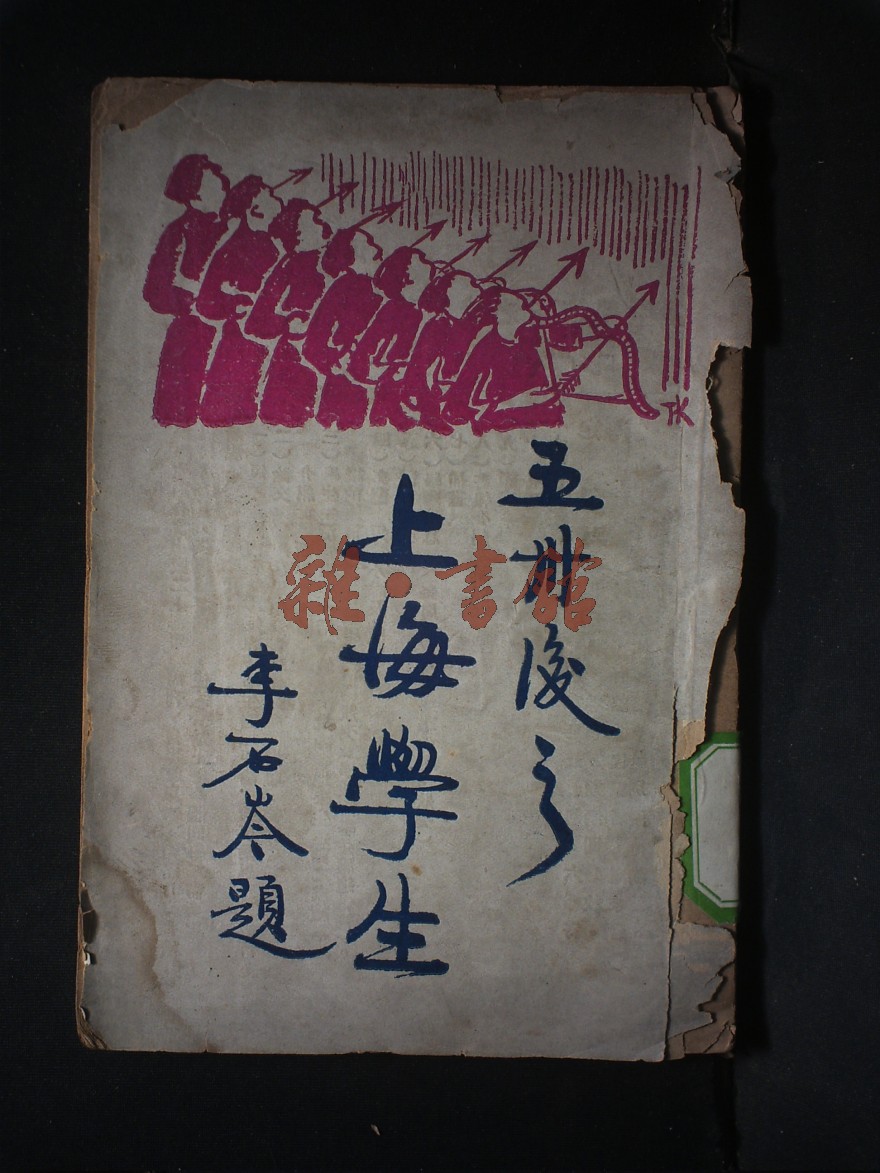 五卅後之
上海學生
李石岑題
TK
雜·書館